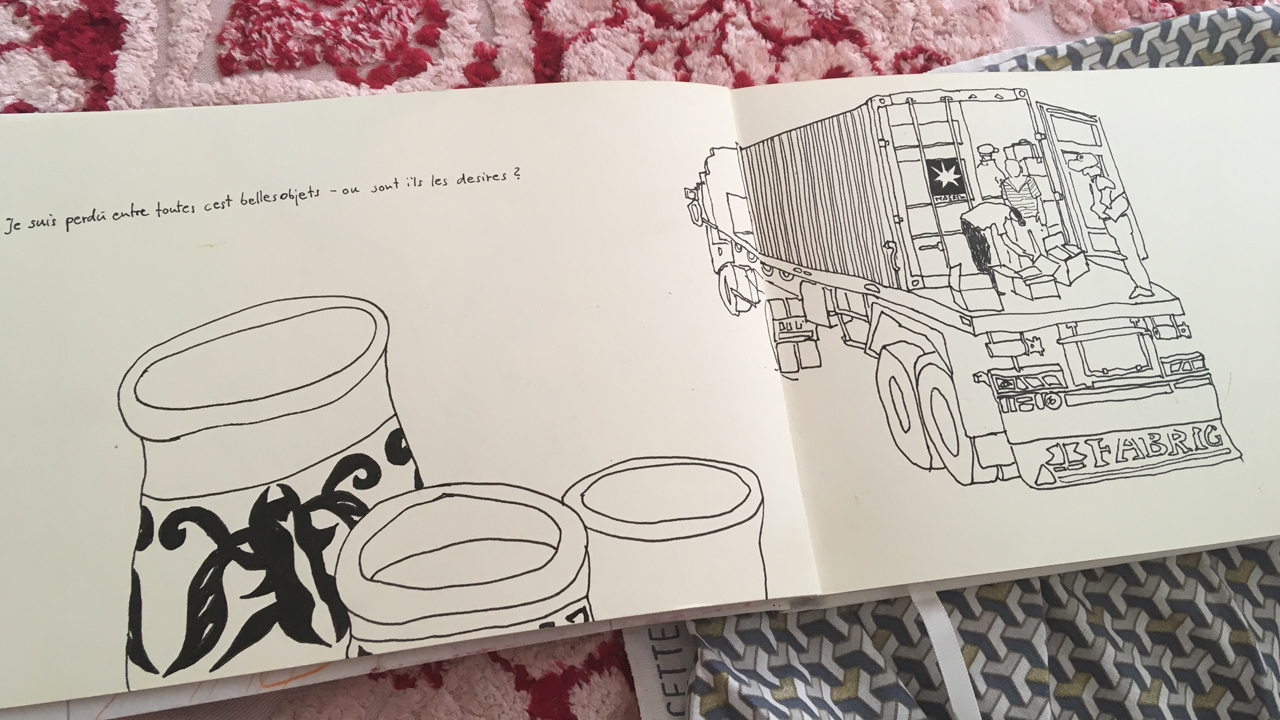 Je suis perdu entre toutes cest belles objets - ou sont ils les desires ?
FABRIG